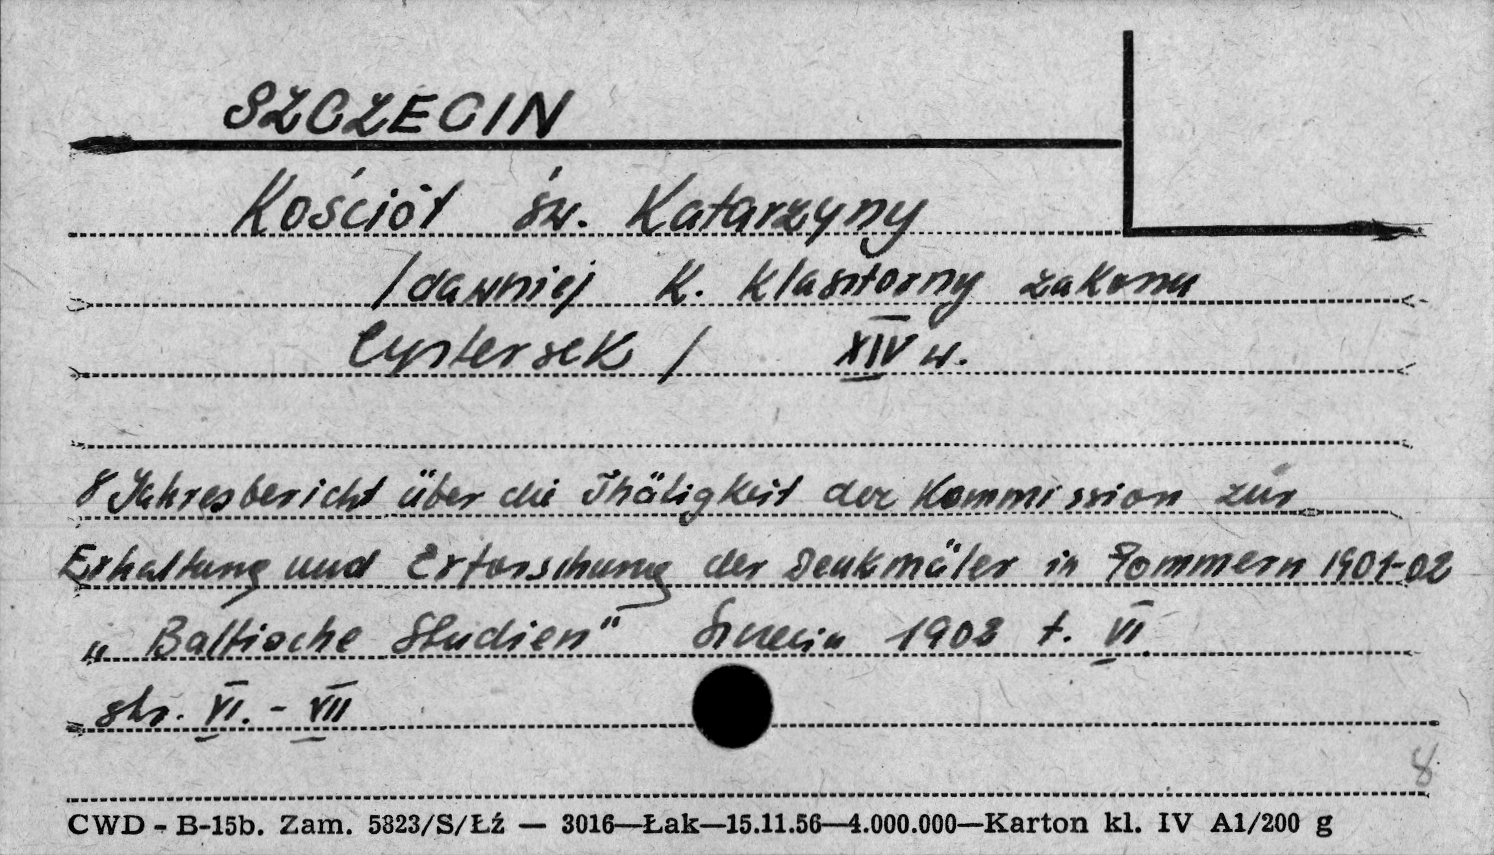 SZCZECIN
Kościół św. Katarzyny
/dawniej K. klasztorny zakonu
Cysterek / XIV w.
8 Jahresbericht über die Thätigkeit der Kommission zur
Erhaltung und Erforschung der Denkmäler in Pommern 1901-02
„Baltische Studien" Szczecin 1902 t. VI.
str. VI. - VII
8
CWD - B-15b. Zam. 5823/S/Łź — 3016—Łak—15.11.56—4.000.000—Karton kl. IV A1/200 g